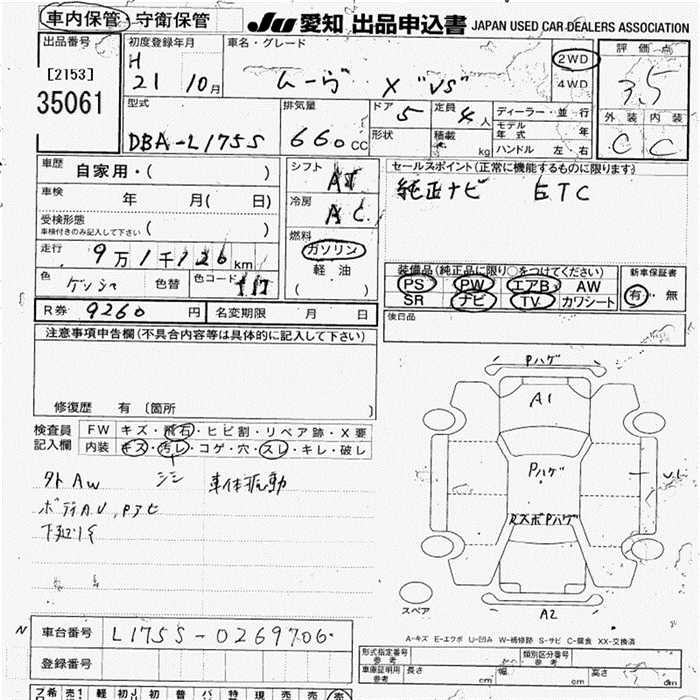 車内保管・守衛保管 JU 愛知 出品申込書 JAPAN USED CAR DEALERS ASSOCIATION
出品番号 [2153] 35061
初度登録年月 H 21 10月
車名・グレード ムーヴ X "VS"
2WD
4WD
評価点 3.5
外装 内装
C C
型式 DBA-L175S
排気量 660CC
ドア 5 定員 4人
形状 積載 kg
ディーラー・並行
モデル年式 年
ハンドル 左・右
車歴 自家用・( )
車検 年 月( 日)
受検形態
車検付きのみ記入して下さい ( )
走行 9万1千126km
色 色替 色コード
シフト AT
冷房 AC
燃料 ガソリン
軽油
( )
セールスポイント(正常に機能するものに限ります)
純正ナビ ETC
装備品(純正品に限り○をつけてください)
PS PW エアB AW
SR ナビ TV カワシート
新車保証書
有・無
R券 9260円 名変期限 月 日
後日品
注意事項申告欄(不具合内容等は具体的に記入して下さい)
修復歴 有 〔箇所 〕
検査員記入欄
FW キズ・飛石・ヒビ割・リペア跡・X要
内装 キズ・汚レ・コゲ・穴・スレ・キレ・破レ
シミ
外AW 車体振動
ボディAU,Pアセ
下廻りS
Pハゲ
A1
Pハゲ
リスポPハゲ
A2
スペア
A-キズ E-エクボ U-凹み W-補修跡 S-サビ C-腐食 XX-交換済
車台番号 L175S-0269706
登録番号
形式指定番号 参考 類別区分番号 参考
車庫証明用 参考 長さ cm 幅 cm 高さ cm